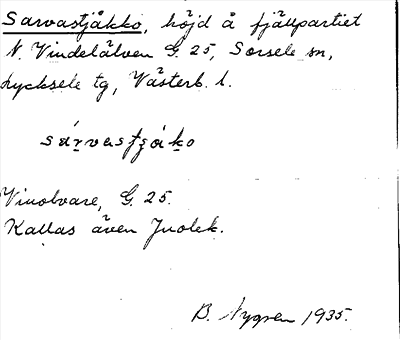 Sarvastjåkko, höjd å fjällpartiet
N. Vindelälven G. 25, Sorsele sn,
Lycksele tg, Västerb. l.
sárvastʒáko
Vinolvare, G. 25.
Kallas även Juolek.
B. Nygren 1935.